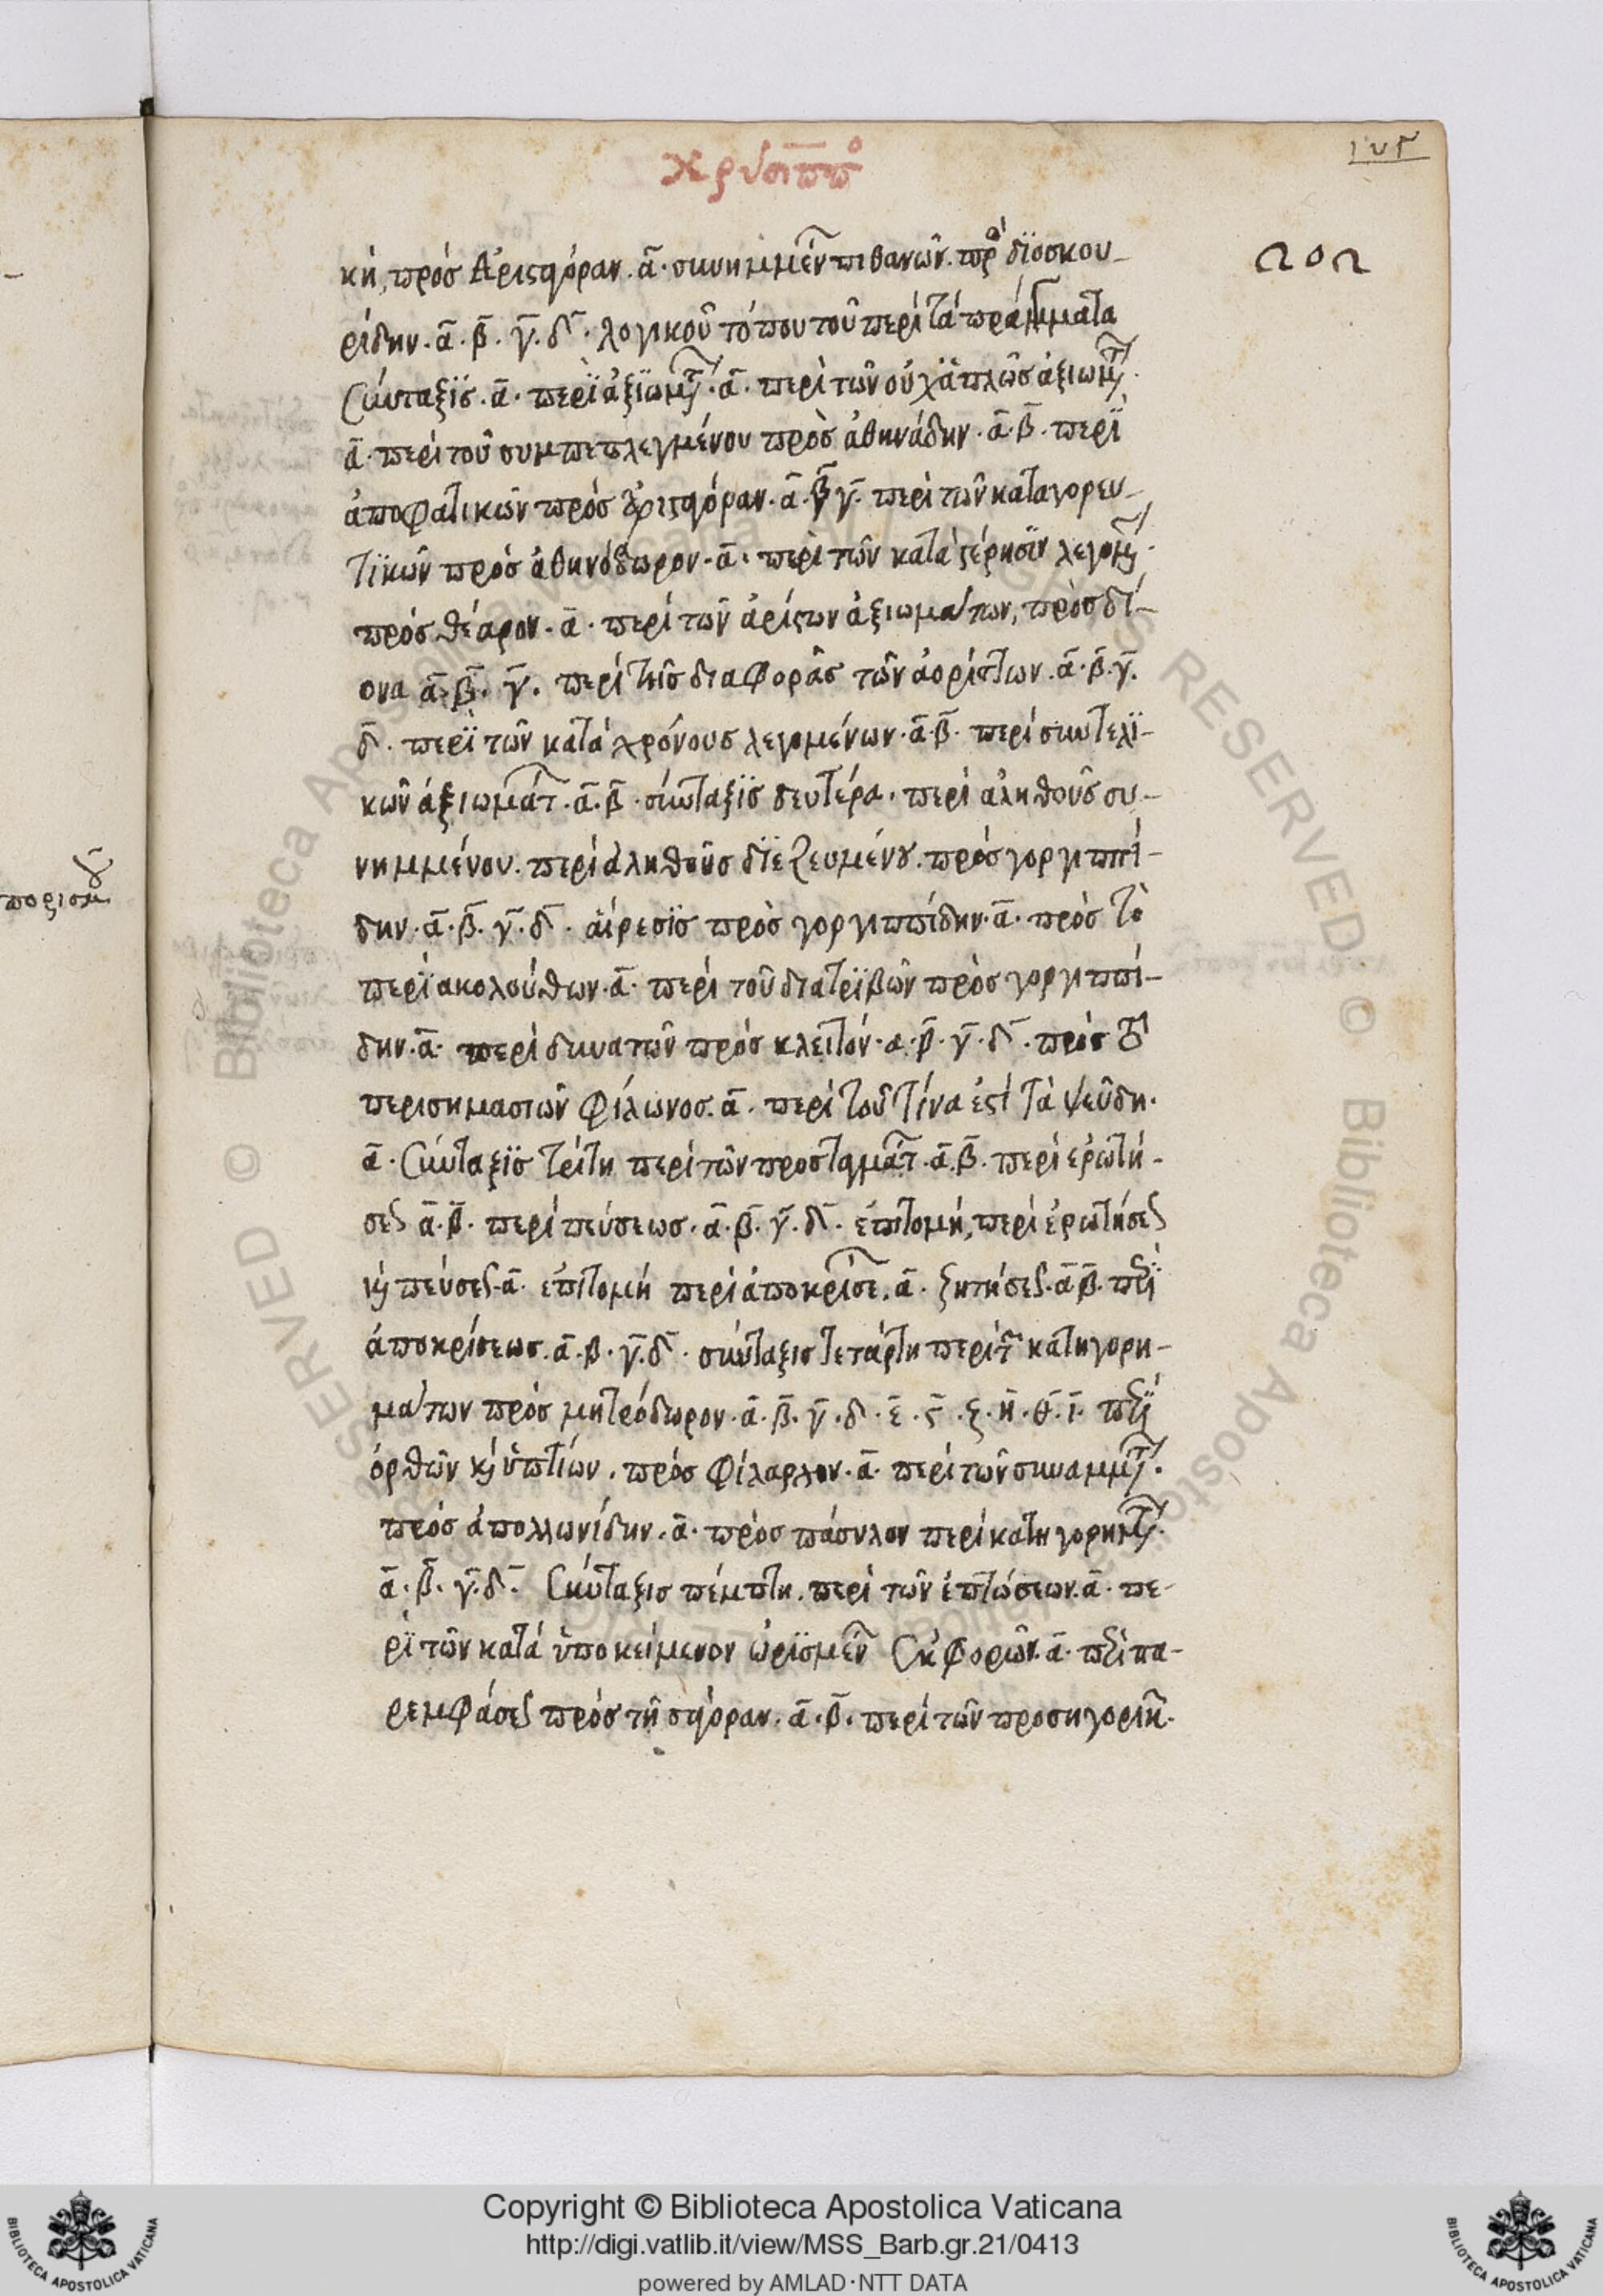 χρύσιππο
κή, πρὸς Ἀρισταγόραν. ᾱ. συνημμέν πιθανῶν. πρὸ διοσκου-
202
ρίδην. ᾱ. β̄. γ̄. δ̄. λογικοῦ τόπου τοῦ περὶ τὰ πράγματα
Σύνταξις. ᾱ. περὶ ἀξιωμτ. ᾱ. περὶ τῶν οὐχ ἁπλῶς ἀξιωμτ.
ᾱ. περὶ τοῦ συμπεπλεγμένου πρὸς ἀθηνάδην. ᾱ. β̄. περὶ
ἀποφατικῶν πρὸς ἀρισταγόραν. ᾱ. β̄ γ̄. περὶ τῶν καταγορευ-
τικῶν πρὸς ἀθηνόδωρον. ᾱ. περὶ τῶν κατὰ στέρησιν λεγομ.
πρὸς θέαρον. ᾱ. περὶ τῶν ἀρίστων ἀξιωμάτων, πρὸς δί-
ονα ᾱ. β̄. γ̄. περὶ τῆς διαφορᾶς τῶν ἀορίστων. ᾱ. β̄. γ̄.
δ̄. περὶ τῶν κατὰ χρόνους λεγομένων. ᾱ. β̄. περὶ συντελι-
κῶν ἀξιωμάτ. ᾱ. β̄. σύνταξις δευτέρα. περὶ αληθοῦς συ-
νημμένου. περὶ ἀληθοῦς διεζευμένου. πρὸς γοργιππί-
δην. ᾱ. β̄. γ̄. δ̄. αἵρεσις πρὸς γοργιππίδην. ᾱ. πρὸς τὸ
περὶ ακολούθων. ᾱ. περὶ τοῦ διατριβῶν πρὸς γοργιππί-
δην. ᾱ. περὶ δυνατῶν πρὸς κλεῖτόν. α. β̄. γ̄. δ̄. πρὸς τὸ
περισημασιῶν φίλωνος. ᾱ. περὶ τοῦ τίνα ἐστὶ τὰ ψεῦδη.
ᾱ. Σύνταξις τρίτη περὶ τῶν προσταγμάτ. ᾱ. β̄. περὶ ἐρωτή-
σες ᾱ. β̄. περὶ πεύσεως. ᾱ. β̄. γ̄. δ̄. ἐπιτομή, περὶ ἐρωτήσες
καὶ πεύσες. ᾱ. ἐπιτομή περὶ ἀποκρίσε. ᾱ. ζητήσες. ᾱ β̄. περὶ
ἀποκρίσεως. ᾱ. β. γ̄. δ̄. σύνταξις τετάρτη περὶ τ κατηγορη-
μάτων πρὸς μητρόδωρον. ᾱ. β̄. γ̄. δ. ε̄. ϛ̄. ζ. η̄. θ̄. ῑ. περὶ
ὀρθῶν καὶ ὑπτίων. πρὸς φίλαρχον. ᾱ. περὶ τῶν συναμμτ.
πρὸς ἀπολλωνίδην. ᾱ. πρὸς πάσυλον περὶ κατηγορημτ.
ᾱ. β̄. γ̄. δ̄. Σύνταξις πέμπτη. περὶ τῶν ἐπτώσεων. ᾱ. πε-
ρὶ τῶν κατὰ ὑποκείμενον ὡρισμέν Σκφοριῶν. ᾱ. περὶ πα-
ρεμφάσες πρὸς τη σαγόραν. ᾱ. β̄. περὶ τῶν προσηγορικ.
Copyright © Biblioteca Apostolica Vaticana
http://digi.vatlib.it/view/MSS_Barb.gr.21/0413
powered by AMLAD·NTT DATA